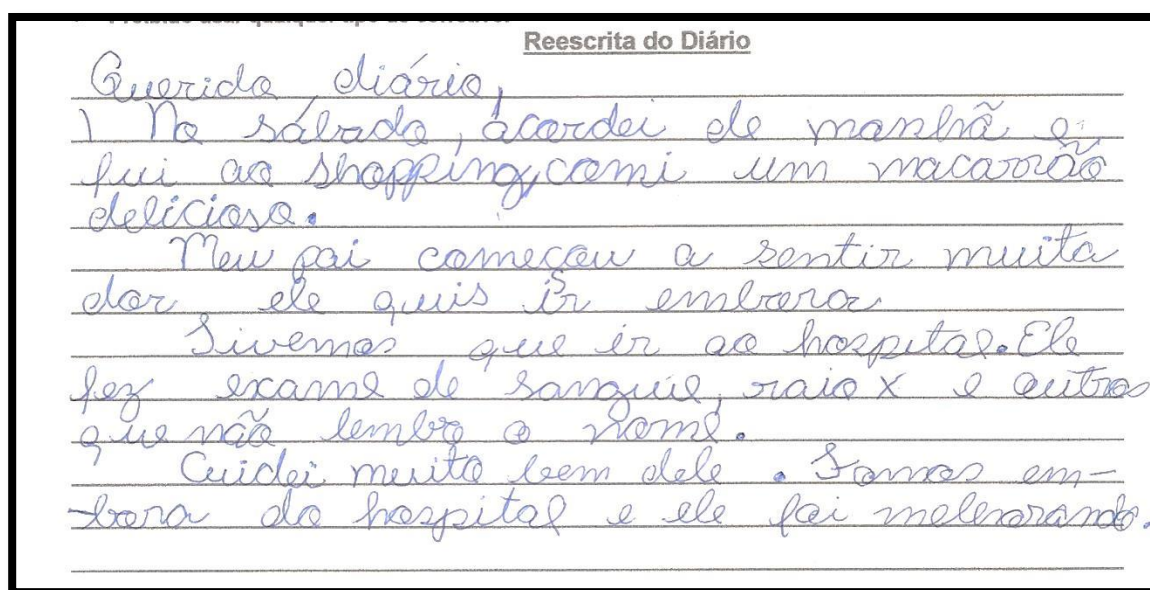 Reescrita do Diário
Querido diário,
No sábado, acordei de manhã e
fui ao shopping, comi um macarrão
delicioso.
Meu pai começou a sentir muita
dor ele quis ir embora
Tivemos que ir ao hospital. Ele
fez exame de sangue, raio x e outros
que não lembro o nome.
Cuidei muito bem dele. Fomos em-
bora do hospital e ele foi melhorando.